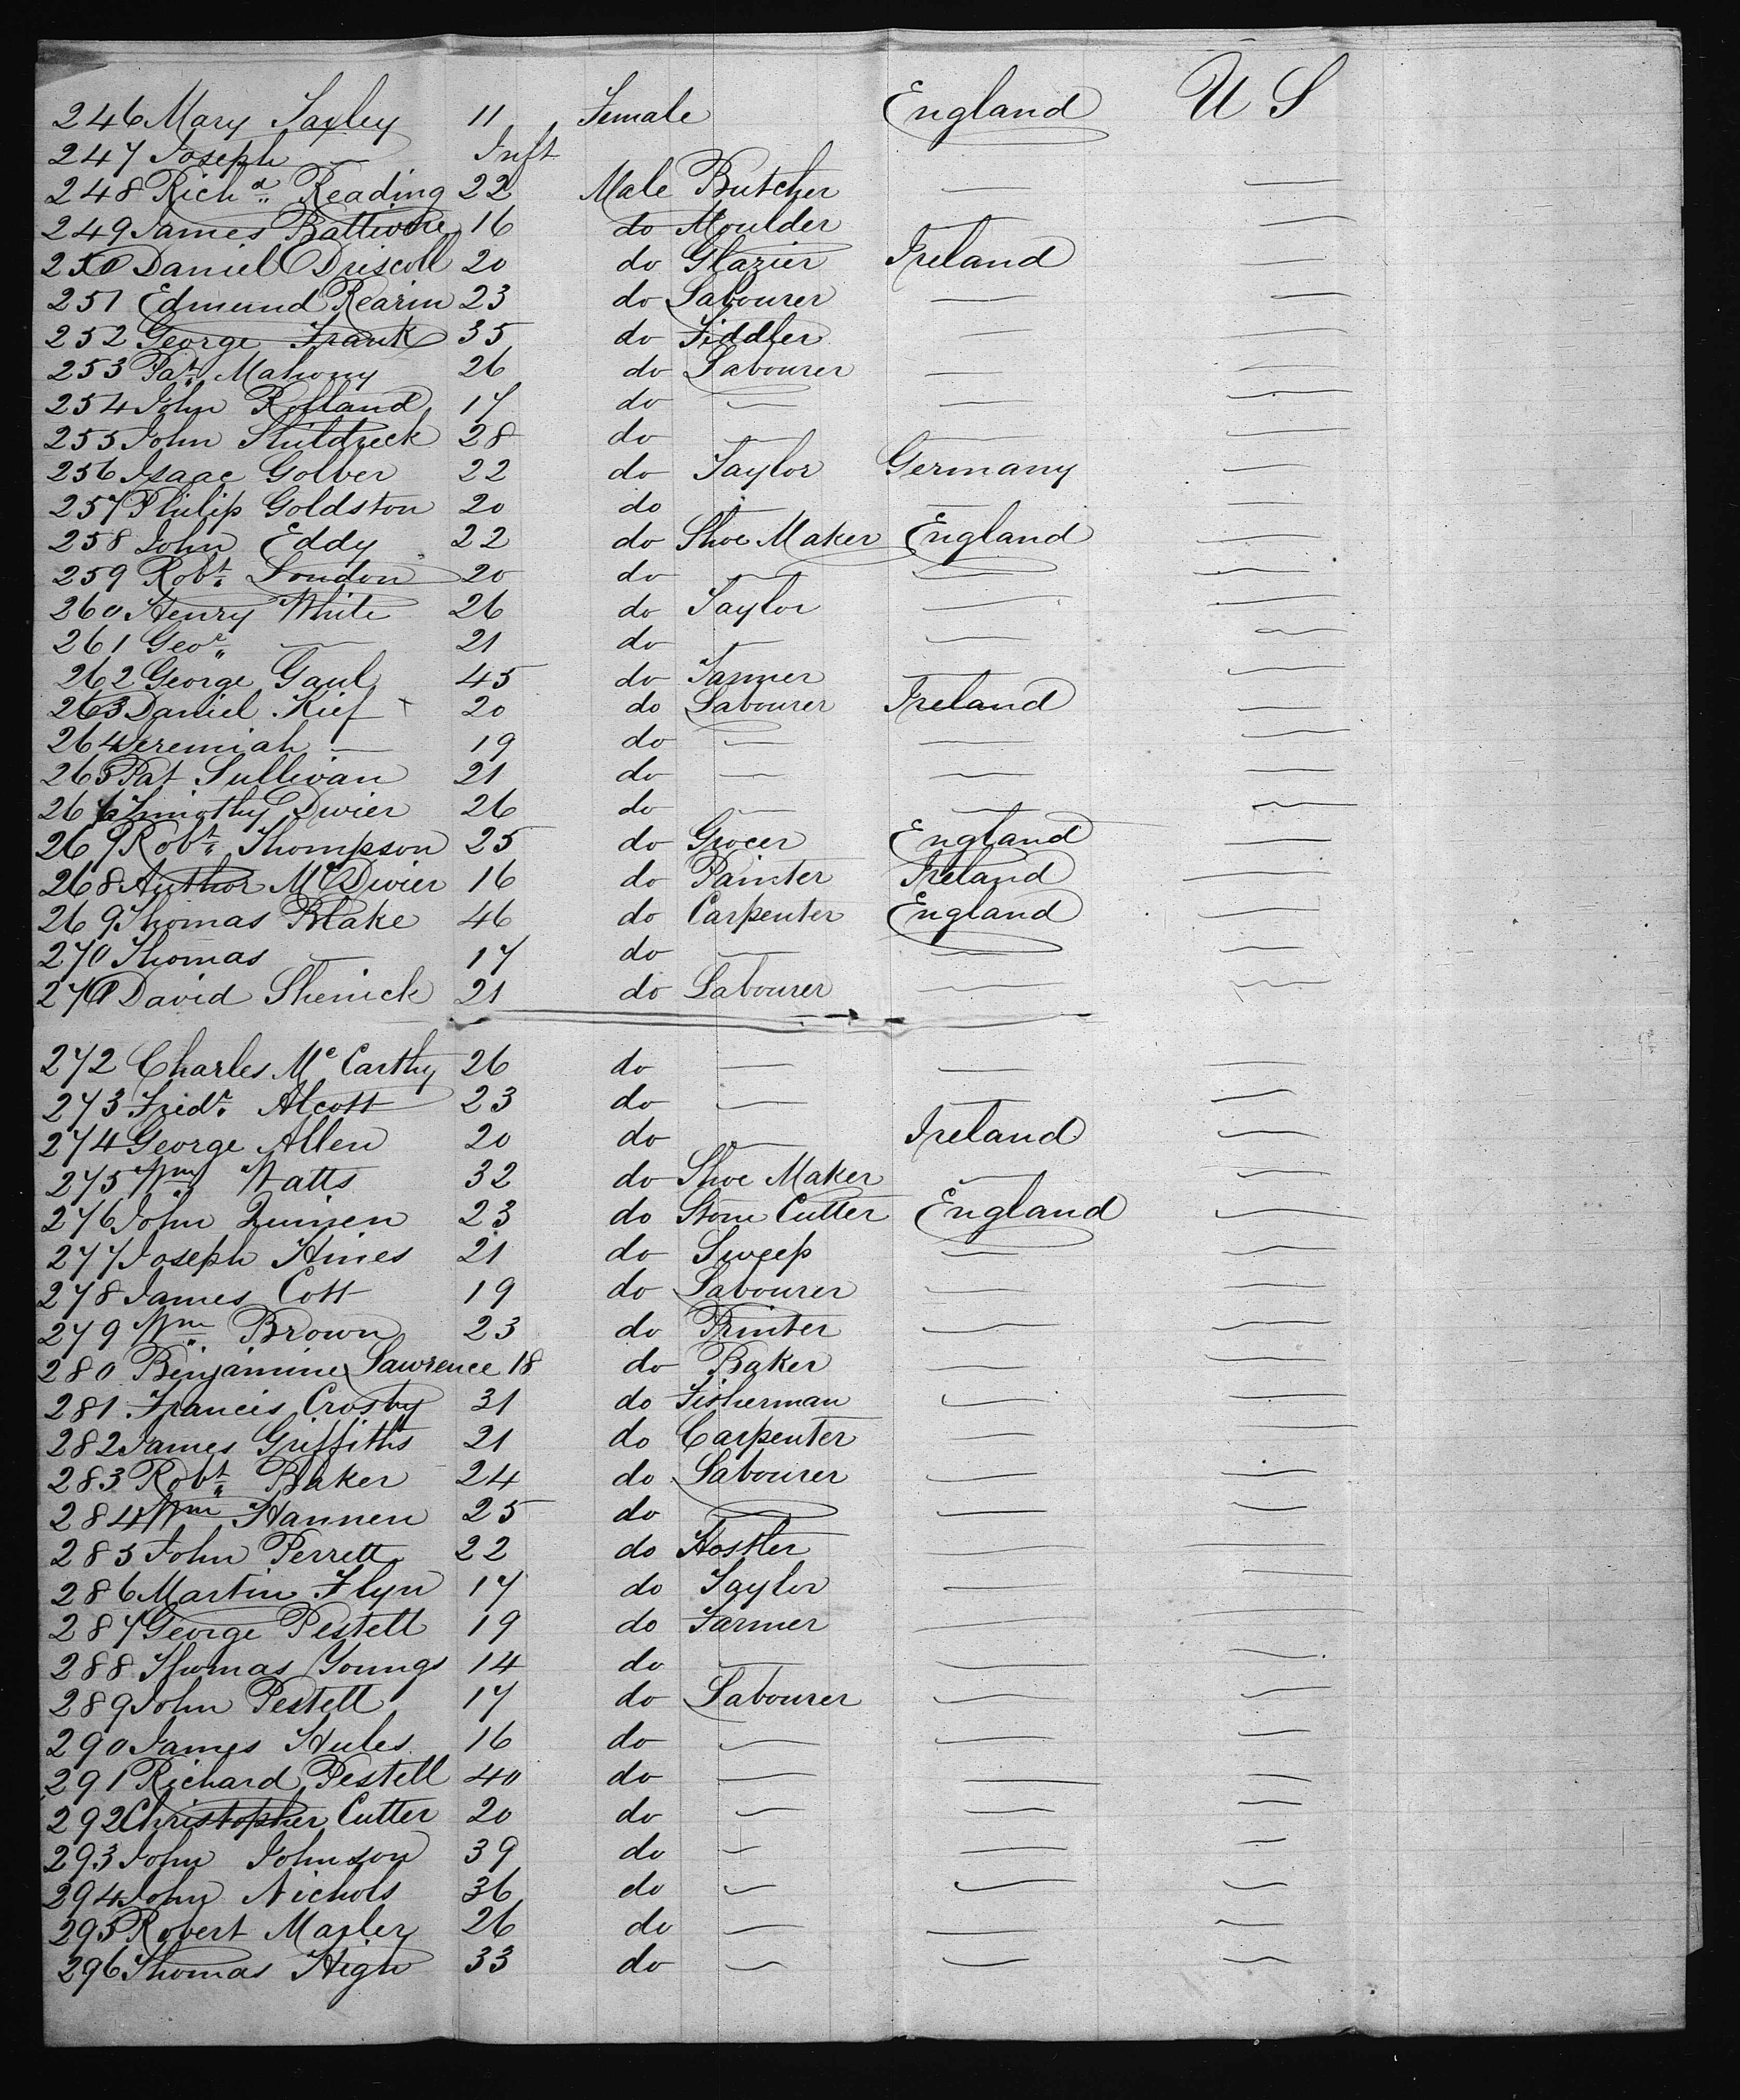 246 Mary Saxley 11 Female England U S
247 Joseph — Inft
248 Richd. Reading 22 Male Butcher — —
249 James Battwore 16 do Moulder — —
250 Daniel Driscoll 20 do Glazier Ireland —
251 Edmund Rearin 23 do Labourer — —
252 George Frank 35 do Fiddler — —
253 Pat. Mahony 26 do Labourer — —
254 John Rolland 17 do — — —
255 John Shildreck 28 do — — —
256 Isaac Golber 22 do Taylor Germany —
257 Philip Goldston 20 do — — —
258 John Eddy 22 do Shoe Maker England —
259 Robt. London 20 do — — —
260 Henry White 26 do Taylor — —
261 Geoe. — 21 do — — —
262 George Gaul 45 do Tanner — —
263 Daniel Kief 20 do Labourer Ireland —
264 Jeremiah — 19 do — — —
265 Pat Sullivan 21 do — — —
266 Timothy Dwier 26 do — — —
267 Robt. Thompson 25 do Grocer England —
268 Author McDwier 16 do Painter Ireland —
269 Thomas Blake 46 do Carpenter England —
270 Thomas — 17 do — — —
271 David Shenick 21 do Labourer — —
272 Charles Mc Carthy 26 do — — —
273 Fredr. Alcott 23 do — — —
274 George Allen 20 do — Ireland —
275 Wm. Watts 32 do Shoe Maker — —
276 John Quinen 23 do Stone Cutter England —
277 Joseph Hines 21 do Sweep — —
278 James Cott 19 do Labourer — —
279 Wm. Brown 23 do Printer — —
280 Benjamine Lawrence 18 do Baker — —
281 Francis Crosby 31 do Fisherman — —
282 James Griffiths 21 do Carpenter — —
283 Robt. Blaker 24 do Labourer — —
284 Wm Hannen 25 do — — —
285 John Perrett 22 do Hostler — —
286 Martin Flyn 17 do Taylor — —
287 George Pestell 19 do Farmer — —
288 Thomas Youngs 14 do — — —
289 John Pestell 17 do Labourer — —
290 James Hules 16 do — — —
291 Richard Pestell 40 do — — —
292 Christopher Cutter 20 do — — —
293 John Johnson 39 do — — —
294 John Nichols 36 do — — —
295 Robert Marler 26 do — — —
296 Thomas High 33 do — — —